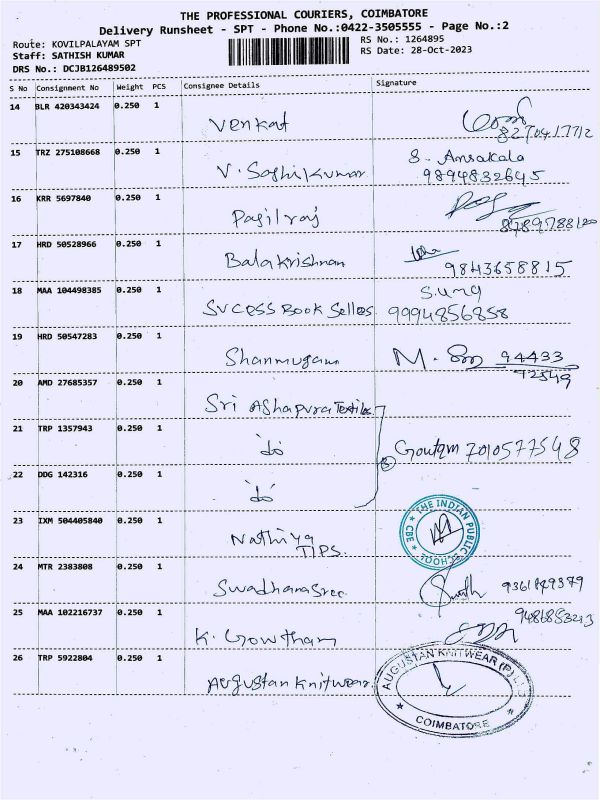 THE PROFESSIONAL COURIERS, COIMBATORE
Delivery Runsheet - SPT - Phone No.:0422-3505555 - Page No.:2
Route: KOVILPALAYAM SPT
RS No.: 1264895
Staff: SATHISH KUMAR
RS Date: 28-Oct-2023
DRS No.: DCJB126489502
S No Consignment No Weight PCS Consignee Details Signature
14 BLR 420343424 0.250 1 Venkat
15 TRZ 275108668 0.250 1 V. Sashikumar S. Ansakala
9894832645
16 KRR 5697840 0.250 1
17 HRD 50528966 0.250 1 Balakrishnan 9843658815
18 MAA 104498385 0.250 1 SUCESS Book Selles. 9994856858
19 HRD 50547283 0.250 1 Shanmugam M. 94433
92549
20 AMD 27685357 0.250 1 Sri Ashapura Textiles
21 TRP 1357943 0.250 1 do Goutam 7010577548
22 DDG 142316 0.250 1 do
23 IXM 504405840 0.250 1 Nathiya
TIPS.
THE INDIAN PUBLIC SCHOOL CBE
24 MTR 2383808 0.250 1 Swadhanasree
25 MAA 102216737 0.250 1 K. Gowtham
26 TRP 5922804 0.250 1 Augustan Knitwear.
AUGUSTAN KNITWEAR (P) LTD
COIMBATORE